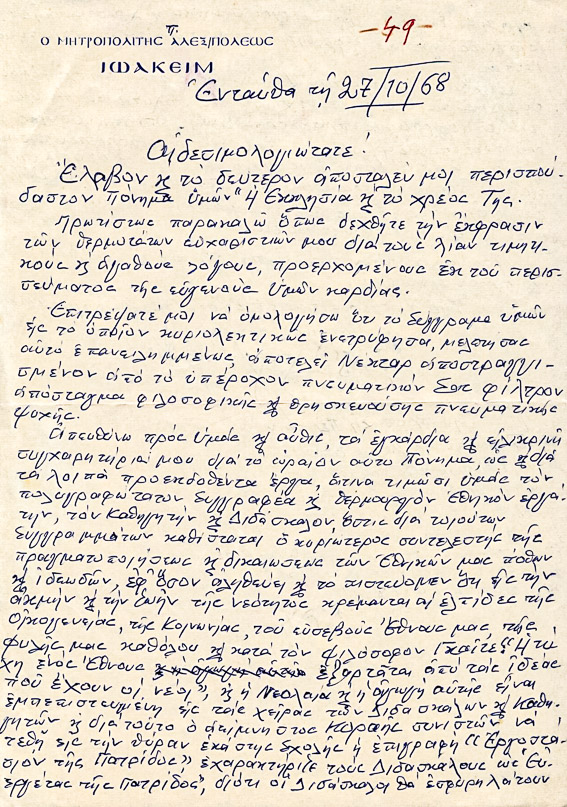 -49-
Ο ΜΗΤΡΟΠΟΛΙΤΗΣ π. ΑΛΕΞ/ΠΟΛΕΩΣ
ΙΩΑΚΕΙΜ
Ἐνταῦθα τῇ 27/10/68
Αἰδεσιμολογιώτατε!
Ἔλαβον κ τὸ δεύτερον ἀποσταλέν μοι περισπού-
δαστον πόνημα ὑμῶν "ἡ Ἐκκλησία κ τὸ χρέος Της.
Πρωτίστως παρακαλῶ ὅπως δεχθῆτε τὴν ἔκφρασιν
τῶν θερμοτάτων εὐχαριστιῶν μου διὰ τοὺς λίαν τιμητι-
κοὺς κ ἀγαθοὺς λόγους, προερχομένους ἐκ τοῦ περισ-
σεύματος τῆς εὐγενοῦς ὑμῶν καρδίας.
Ἐπιτρέψατέ μοι νὰ ὁμολογήσω ὅτι τὸ σύγγραμα ὑμῶν
εἰς τὸ ὁποῖον κυριολεκτικῶς ἐνετρύφησα, μελετήσας
αὐτὸ ἐπανειλημμένως, ἀποτελεῖ Νέκταρ ἀποστραγγι-
σμένον ἀπὸ τὸ ὑπέροχον πνευματικὸν Σας φίλτρον
ἀπόσταγμα φιλοσοφικῆς κ θρησκευούσης πνευματικῆς
ψυχῆς.
Ἀπευθύνω πρὸς Ὑμᾶς κ αὖθις, τὰ ἐγκάρδια κ εἰλικρινῆ
συγχαρητήριά μου διὰ τὸ ὡραῖον αὐτὸ Πόνημα, ὡς κ διὰ
τὰ λοιπὰ προεκδοθέντα ἔργα, ἅτινα τιμῶσι Ὑμᾶς τὸν
πολυγραφώτατον συγγραφέα κ θερμουργὸν Ἐθνικὸν ἐργά-
την, τὸν Καθηγητὴν κ Διδάσκαλον, ὅστις διὰ τοιούτων
συγγραμμάτων καθίσταται ὁ κυριώτερος συντελεστὴς τῆς
πραγματοποιήσεως κ δικαιώσεως τῶν Ἐθνικῶν μας πόθων
κ ἰδεωδῶν, ἐφ' ὅσον ἀληθεύει κ τὸ πιστεύομεν ὅτι εἰς τὴν
ἀκμὴν κ τὴν ζωὴν τῆς νεότητος κρέμανται αἱ ἐλπίδες τῆς
Οἰκογενείας, τῆς Κοινωνίας, τοῦ εὐσεβοῦς Ἔθνους μας τῆς
φυλῆς μας καθόλου κ κατὰ τὸν φιλόσοφον Γκαῖτε "Ἡ τύ-
χη ἑνὸς Ἔθνους ἐξαρτᾶται ἀπὸ τὰς ἰδέας
ποῦ ἔχουν οἱ νέοι", κ ἡ Νεολαία κ ἡ ἀγωγὴ αὐτῆς εἶναι
ἐμπεπιστευμένη εἰς τὰς χεῖρας τῶν Διδασκάλων κ Καθη-
γητῶν κ διὰ τοῦτο ὁ ἀείμνηστος Κοραῆς συνιστῶν νὰ
τεθῇ εἰς τὴν θύραν ἑκάστης σχολῆς ἡ ἐπιγραφὴ "Ἐργοστά-
σιον τῆς Πατρίδος" ἐχαρακτήριζε τοὺς Διδασκάλους ὡς Εὐ-
εργέτας τῆς Πατρίδος", διότι οἱ Διδάσκαλοι θὰ